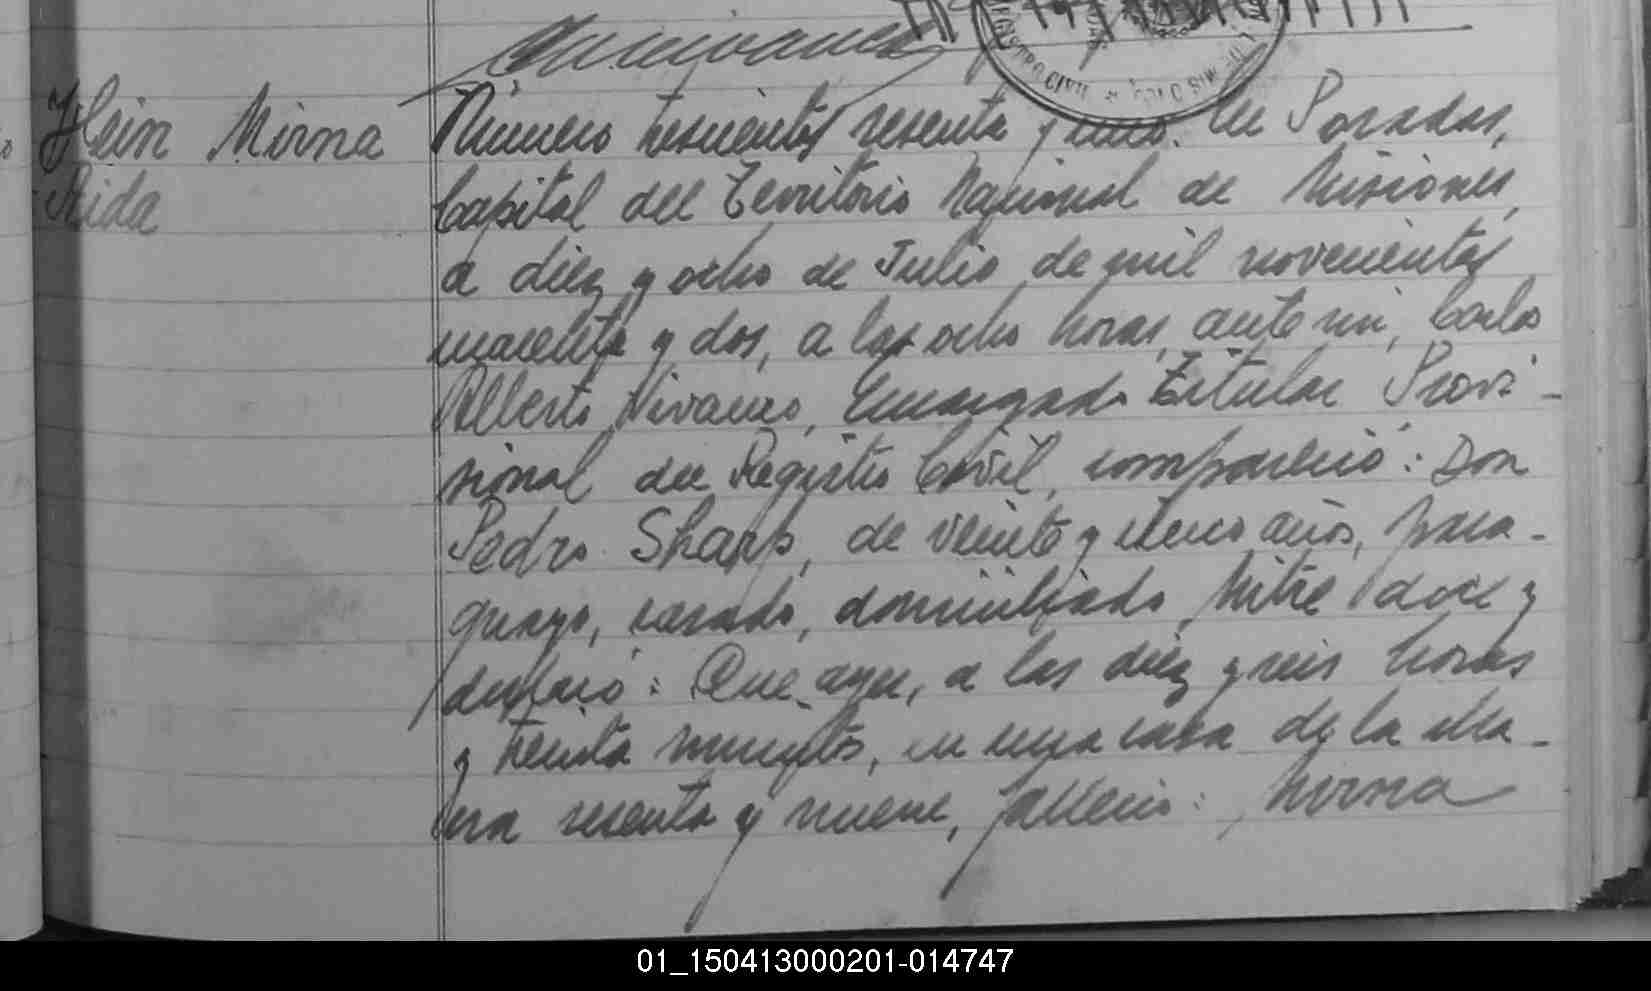 REGISTRO CIVIL
Hein Mirna
Número trescientos sesenta y cinco. En Posadas,
Aida
Capital del Territorio Nacional de Misiones,
a diez y ocho de Julio de mil novecientos
cuarenta y dos, a las ocho horas, ante mi, Carlos
Alberto Vivanco, Encargado Titular Provi-
sional del Registro Civil, compareció: Don
Pedro Sharp, de veinte y cinco años, para-
guayo, casado, domiciliado Mitre doce y
declaró: Que ayer, a las diez y seis horas
y treinta minutos, en una casa de la cha-
cra sesenta y nueve, falleció: Mirna
01_150413000201-014747